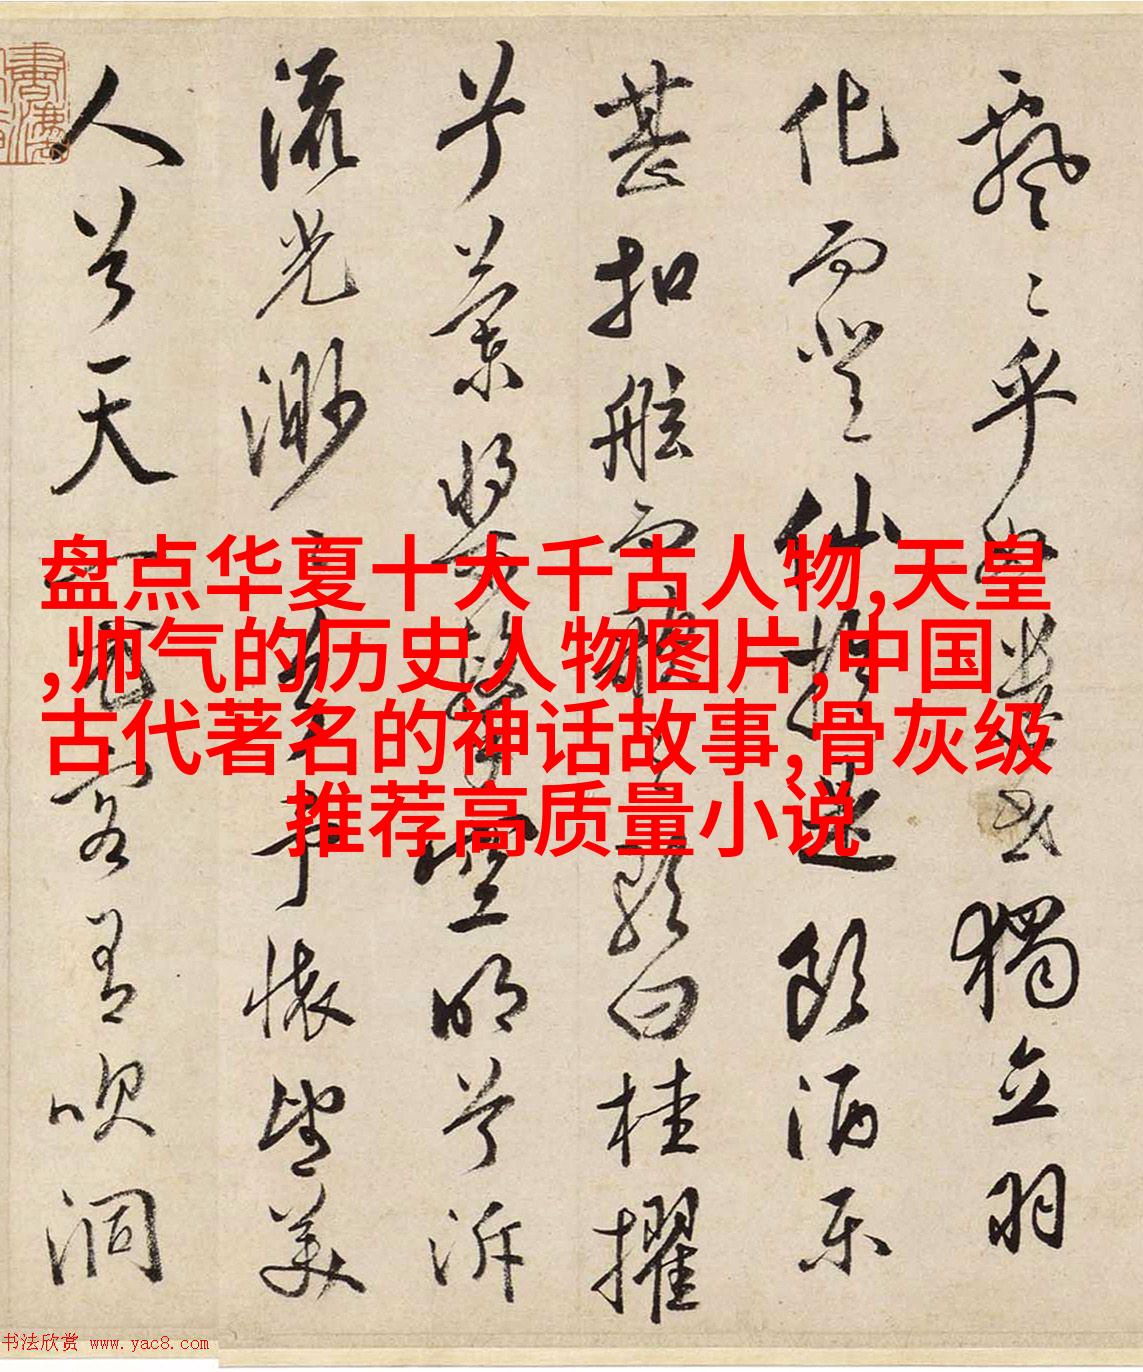 飄〻乎如遺世獨立羽
化而登仙於是飲酒樂
甚扣舷而歌之歌曰桂擢
兮蘭槳擊空明兮泝
流光渺〻兮予懷望美
人兮天一方客有吹洞
盘点华夏十大千古人物,天皇
,帅气的历史人物图片,中国
古代著名的神话故事,骨灰级
推荐高质量小说
书法欣赏 www.yac8.com